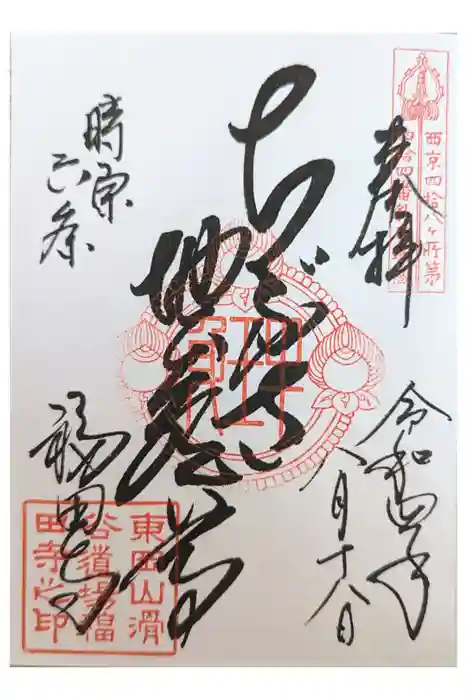 西京四拾八ヶ所第
奉拝
令和四年
八月十八日
地蔵尊
時宗
六条
福田寺
東岡山滑
谷道場福
田寺之印